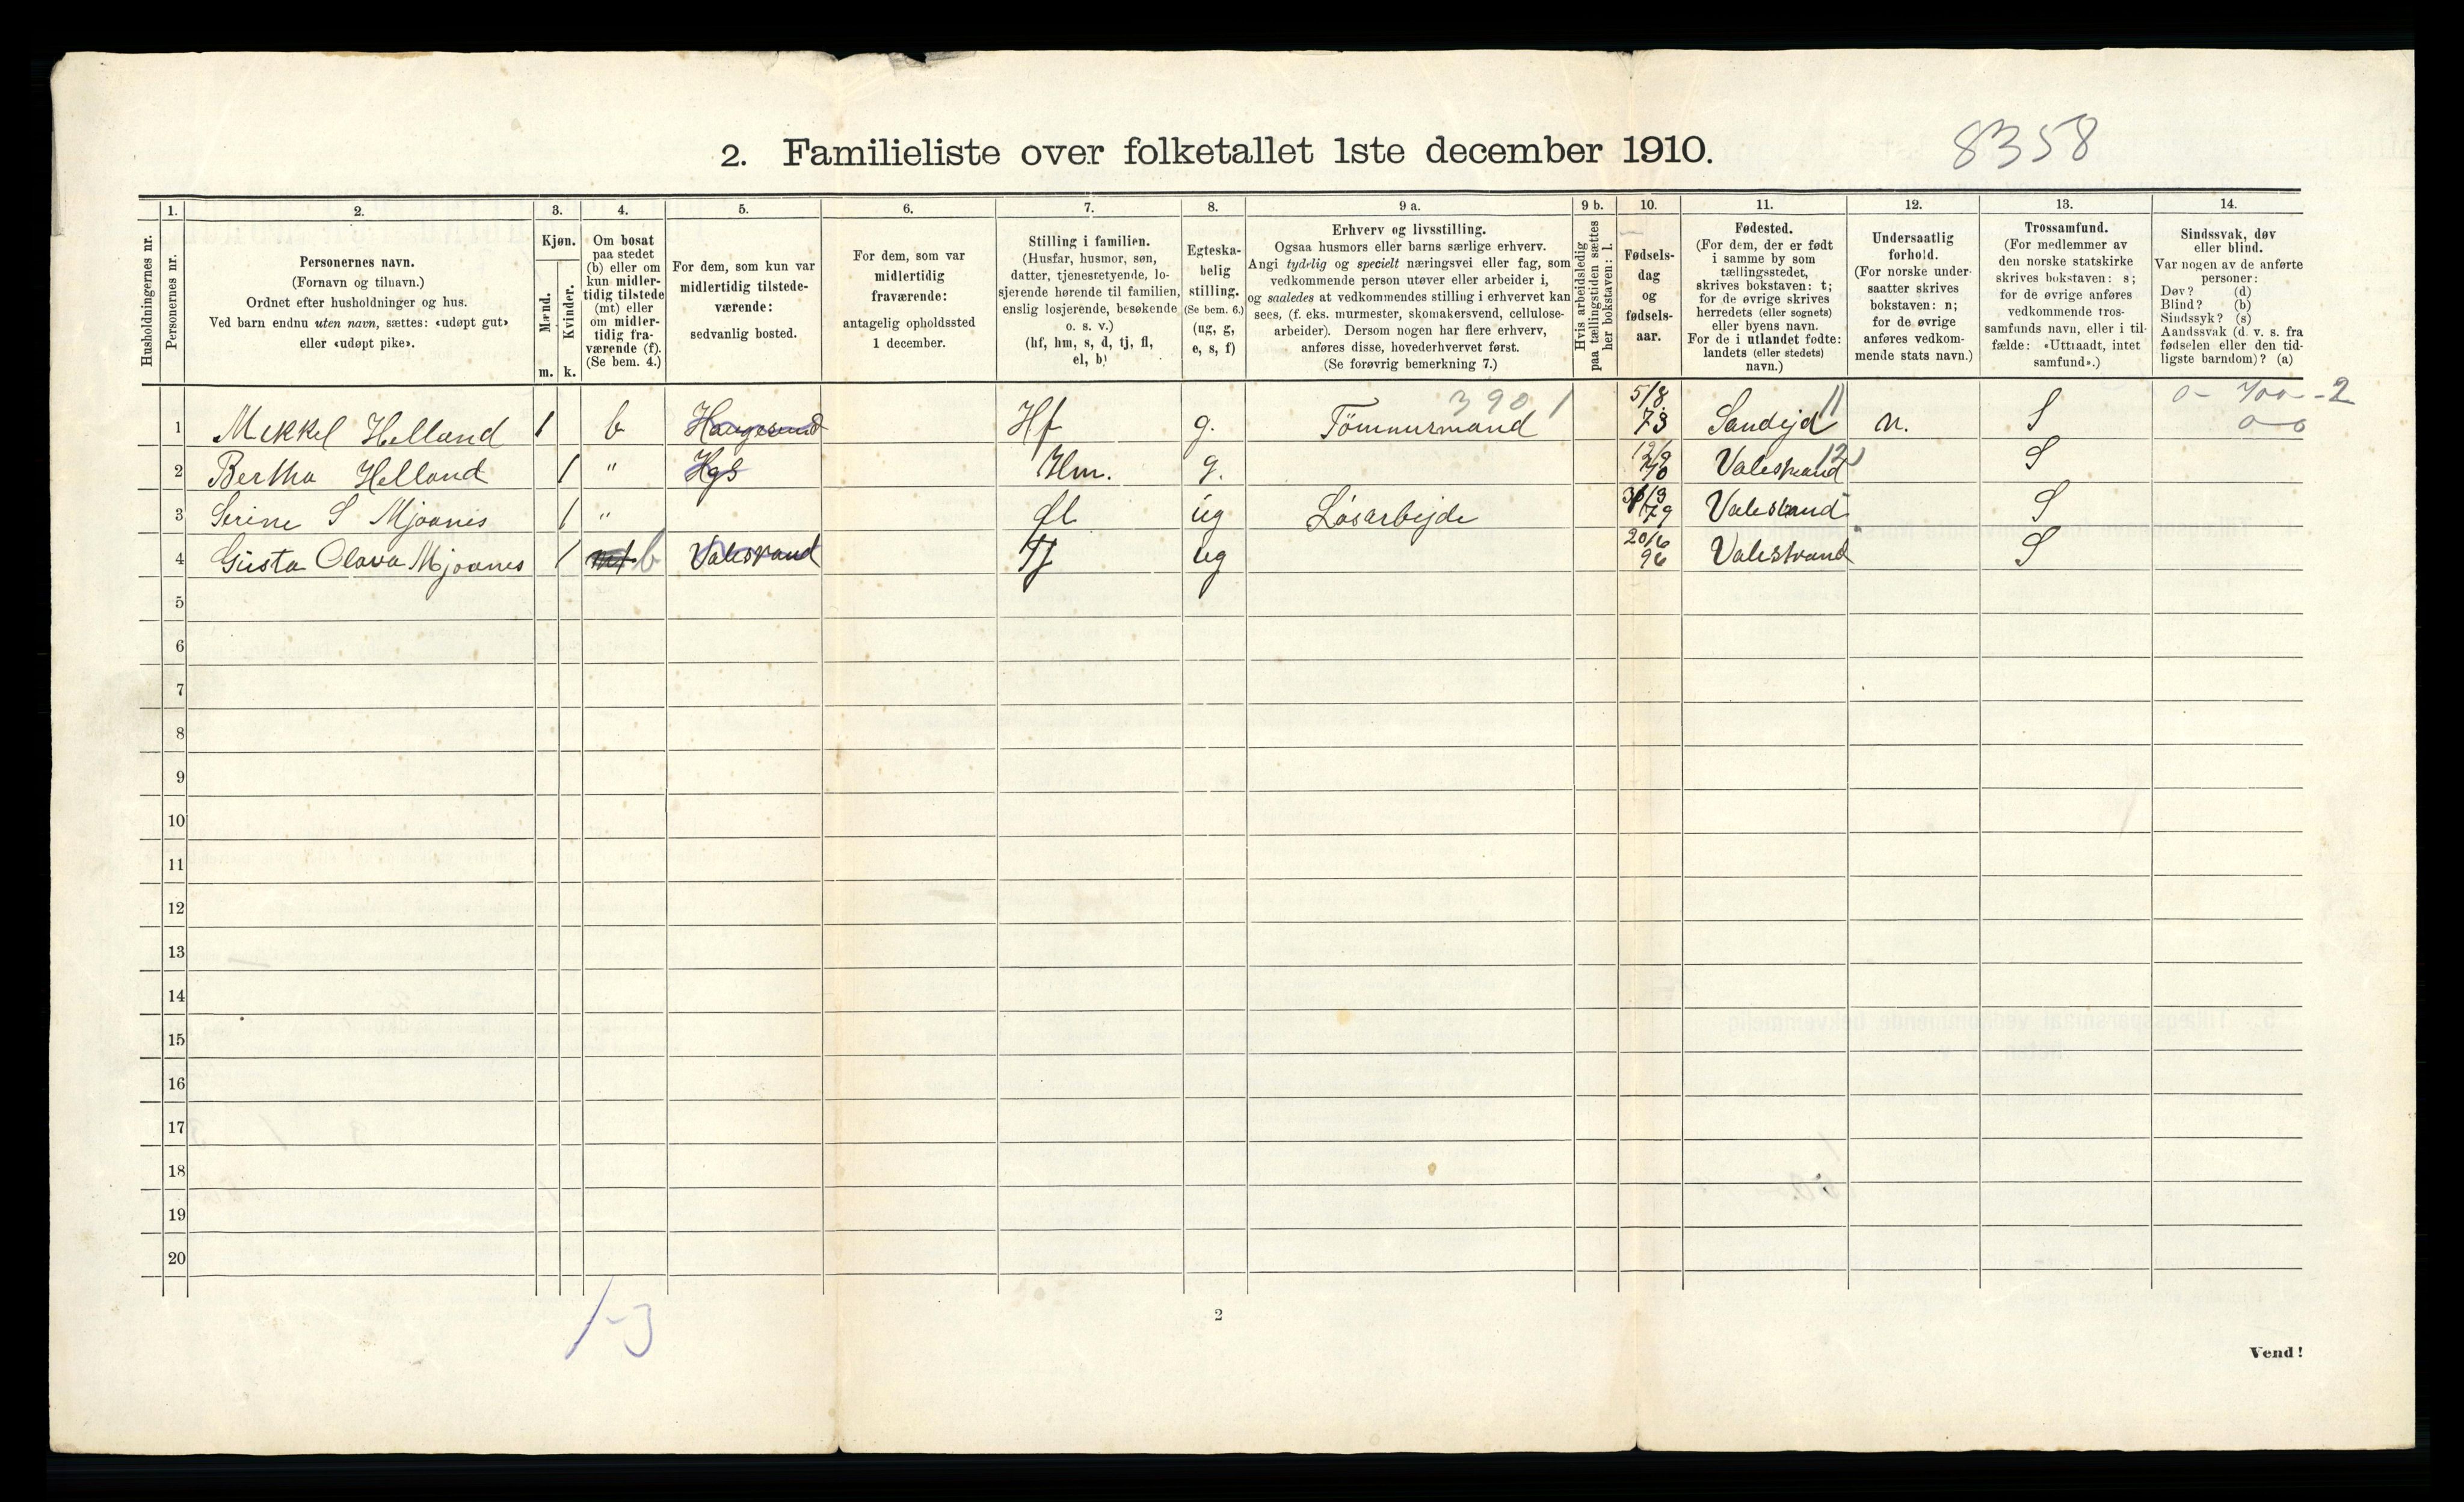 2. Familieliste over folketallet 1ste december 1910.
8358
Husholdningernes nr.
1. Personernes nr.
2. Personernes navn.
(Fornavn og tilnavn.)
Ordnet efter husholdninger og hus.
Ved barn endnu uten navn, sættes: «udøpt gut»
eller «udøpt pike».
3. Kjøn.
Mænd. m.
Kvinder. k.
4. Om bosat
paa stedet
(b) eller om
kun midler-
tidig tilstede
(mt) eller
om midler-
tidig fra-
værende (f).
(Se bem. 4.)
5. For dem, som kun var
midlertidig tilstede-
værende:
sedvanlig bosted.
6. For dem, som var
midlertidig
fraværende:
antagelig opholdssted
1 december.
7. Stilling i familien.
(Husfar, husmor, søn,
datter, tjenestetyende, lo-
sjerende hørende til familien,
enslig losjerende, besøkende
o. s. v.)
(hf, hm, s, d, tj, fl,
el, b)
8. Egteska-
belig
stilling.
(Se bem. 6.)
(ug, g,
e, s, f)
9 a. Erhverv og livsstilling.
Ogsaa husmors eller barns særlige erhverv.
Angi tydelig og specielt næringsvei eller fag, som
vedkommende person utøver eller arbeider i,
og saaledes at vedkommendes stilling i erhvervet kan
sees, (f. eks. murmester, skomakersvend, cellulose-
arbeider). Dersom nogen har flere erhverv,
anføres disse, hovederhvervet først.
(Se forøvrig bemerkning 7.)
9 b. Hvis arbeidsledig
paa tællingstiden sættes
her bokstaven: l.
10. Fødsels-
dag
og
fødsels-
aar.
11. Fødested.
(For dem, der er født
i samme by som
tællingsstedet,
skrives bokstaven: t;
for de øvrige skrives
herredets (eller sognets)
eller byens navn.
For de i utlandet fødte:
landets (eller stedets)
navn.)
12. Undersaatlig
forhold.
(For norske under-
saatter skrives
bokstaven: n;
for de øvrige
anføres vedkom-
mende stats navn.)
13. Trossamfund.
(For medlemmer av
den norske statskirke
skrives bokstaven: s;
for de øvrige anføres
vedkommende tros-
samfunds navn, eller i til-
fælde: «Uttraadt, intet
samfund».)
14. Sindssvak, døv
eller blind.
Var nogen av de anførte
personer:
Døv? (d)
Blind? (b)
Sindssyk? (s)
Aandssvak (d. v. s. fra
fødselen eller den tid-
ligste barndom)? (a)
3901
0- 700 -2
0-0
1 Mekkel Helland 1 b Haugesund Hf g. Tömmermand 5/8 73 Sandejd 11 n. S
2 Bertha Helland 1 " Hgs Hm. g. 12/9 70 Valestrand 12 S
3 Serine S Mjoanes 1 " fl ug Løsarbejde 79 Valestrand S
4 Gusta Olava Mjoanes 1 mt b Valestrand Tj ug 20/6 96 Valestrand S
5
6
7
8
9
10
11
12
13
14
15
16
17
18
19
20
1-3
2
Vend!